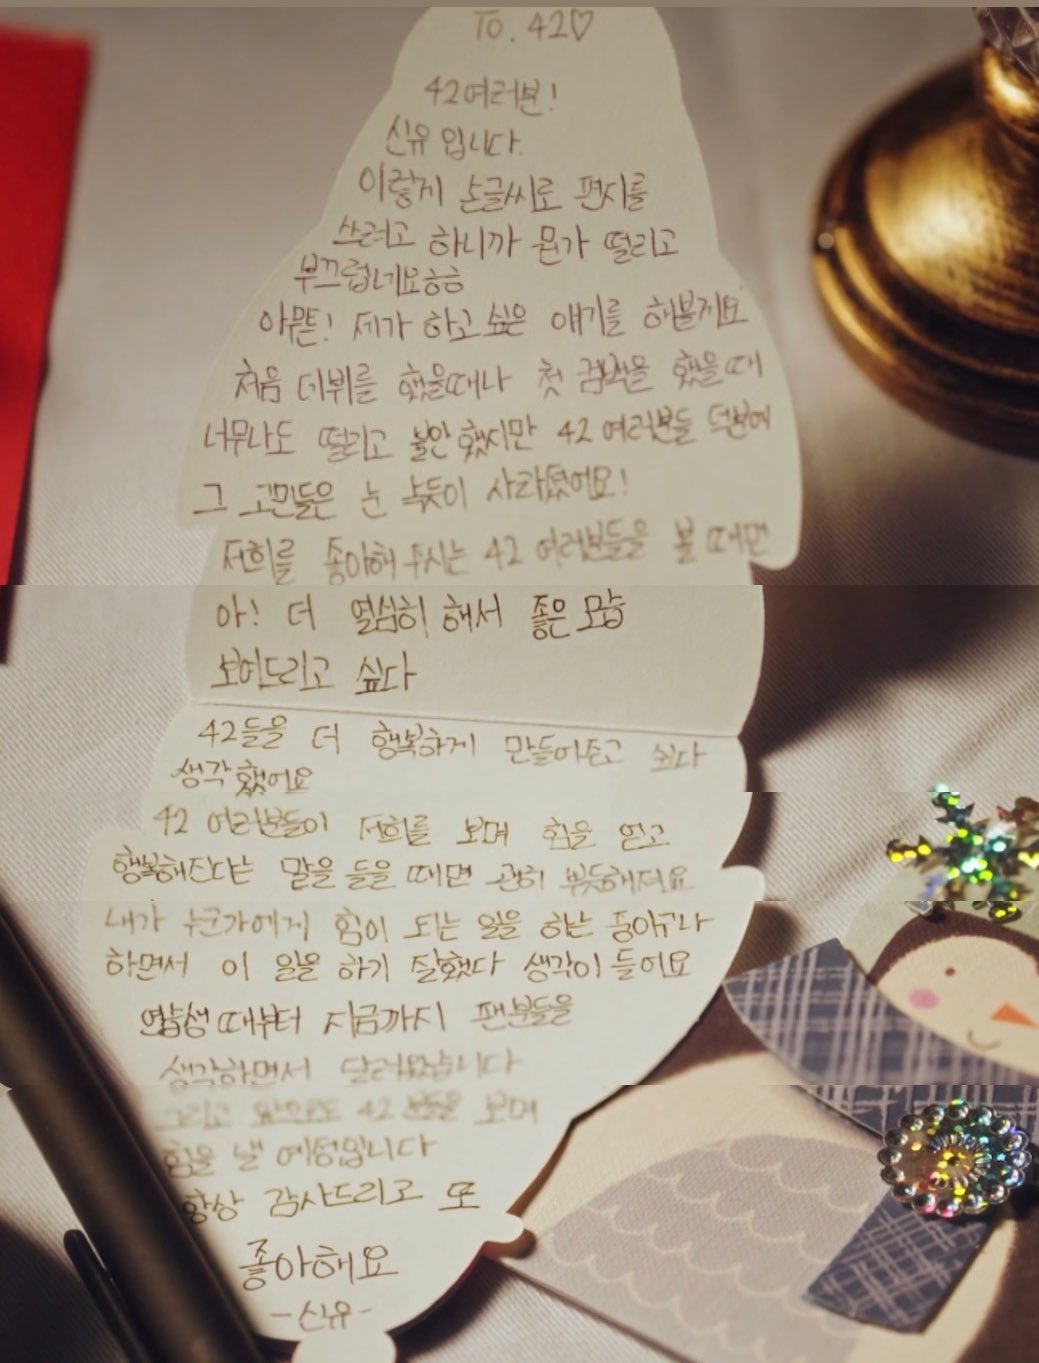 To. 42♡
42여러분!
신유 입니다.
이렇게 손글씨로 편지를
쓰려고 하니까 뭔가 떨리고
부끄럽네요ㅎㅎ
아무튼! 제가 하고 싶은 얘기를 해볼게요
처음 데뷔를 했을때나 첫 컴백을 했을때
너무나도 떨리고 불안했지만 42 여러분들 덕분에
그 고민들은 눈 녹듯이 사라졌어요!
저희를 좋아해 주시는 42 여러분들을 볼 때면
아! 더 열심히 해서 좋은 모습
보여드리고 싶다
42들을 더 행복하게 만들어주고 싶다
생각했어요
42 여러분들이 저희를 보며 힘을 얻고
행복해진다는 말을 들을 때면 괜히 뿌듯해져요
내가 누군가에게 힘이 되는 일을 하는 중이구나
하면서 이 일을 하기 잘했다 생각이 들어요
연습생 때부터 지금까지 팬분들을
생각하면서 달려왔습니다
그리고 앞으로도 42 분들을 보며
힘을 낼 예정입니다
항상 감사드리고 또
좋아해요
-신유-